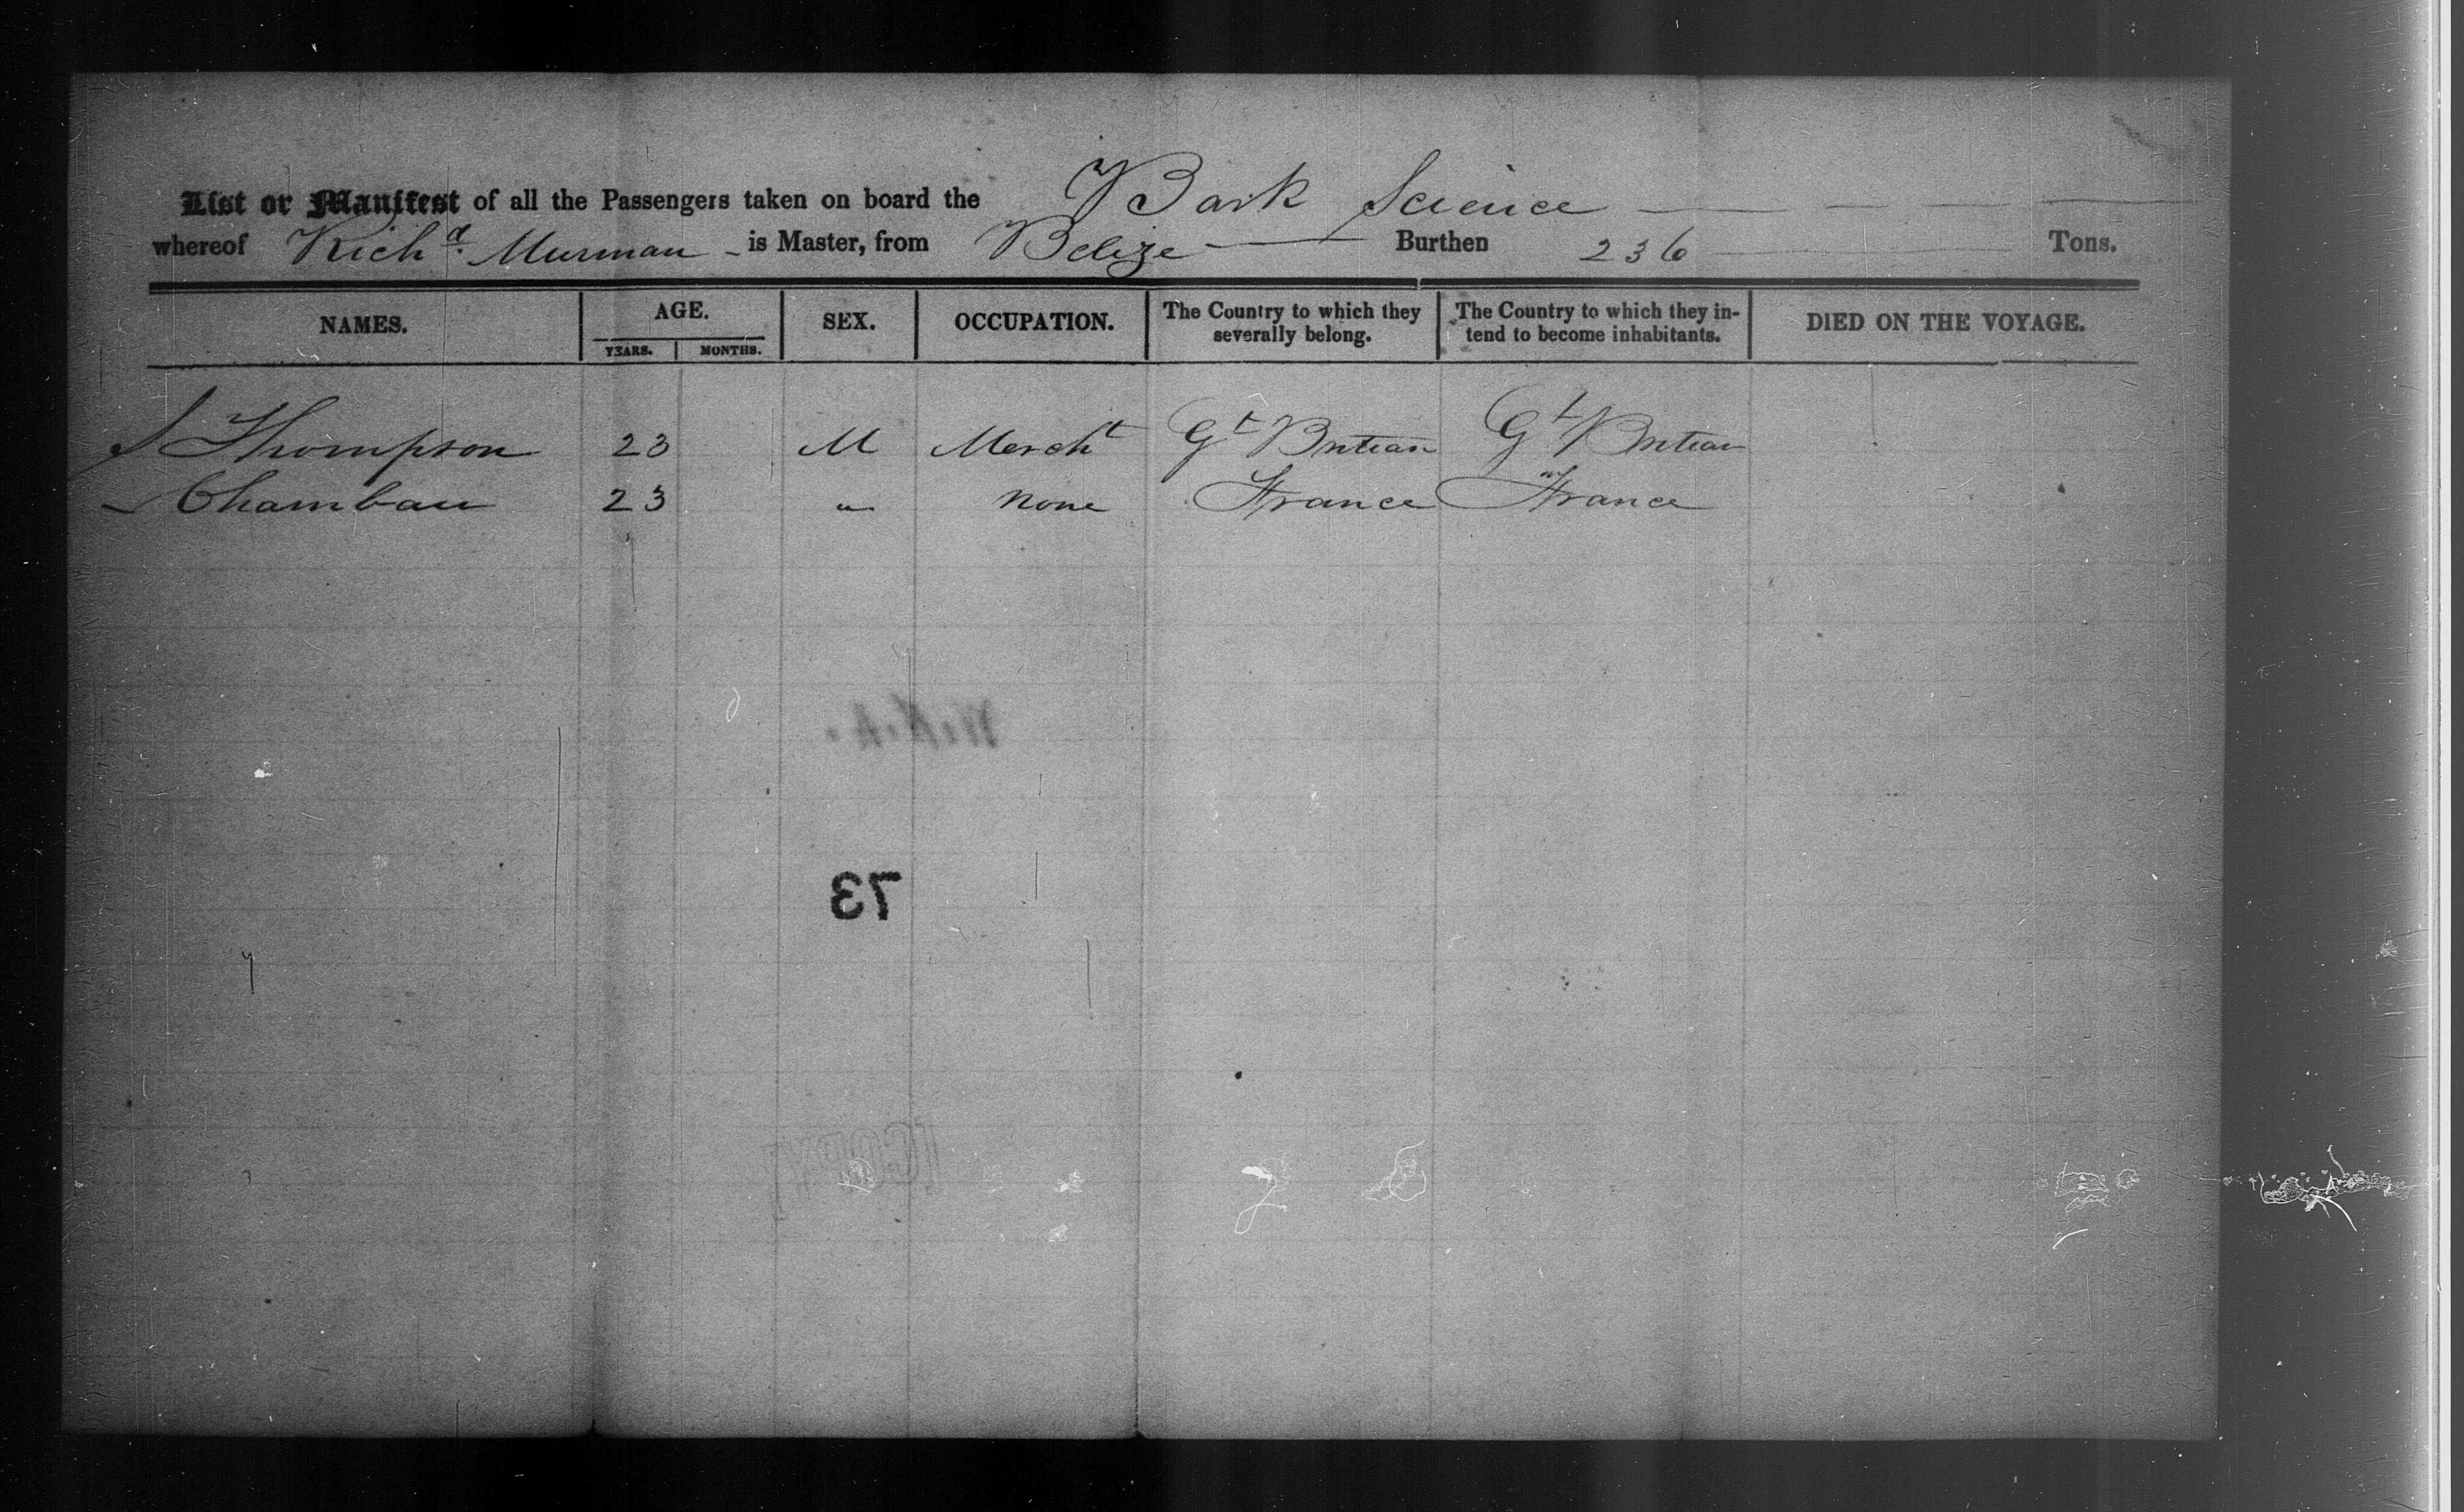 List or Manifest of all the Passengers taken on board the Bark Science
whereof Richd. Murman is Master, from Belize Burthen 236 Tons.
NAMES. AGE. SEX. OCCUPATION. The Country to which they severally belong. The Country to which they intend to become inhabitants. DIED ON THE VOYAGE.
YEARS. MONTHS.
J Thompson 23 M Mercht Gt Britain Gt Britain
— Chambau 23 " None France France
73
[COPY]